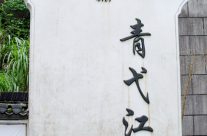 青弋江